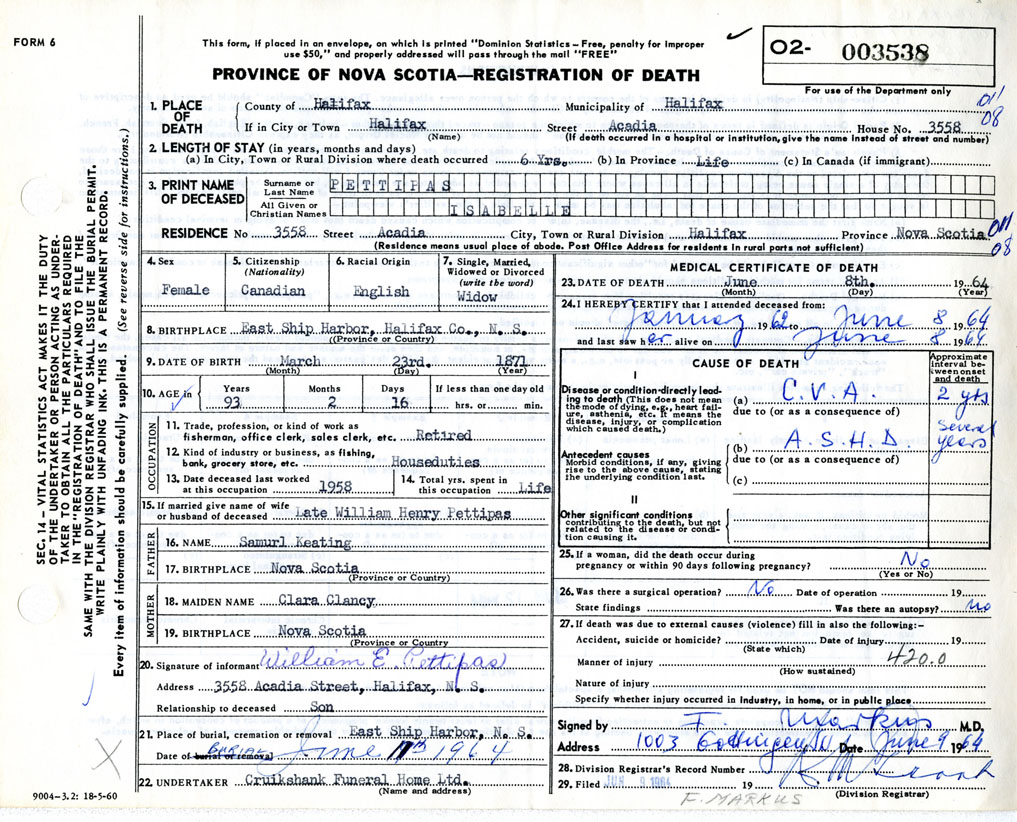 FORM 6
This form, if placed in an envelope, on which is printed "Dominion Statistics – Free, penalty for improper
use $50," and properly addressed will pass through the mail "FREE"
PROVINCE OF NOVA SCOTIA—REGISTRATION OF DEATH
O2- 003538
For use of the Department only
011
08
SEC. 14 – VITAL STATISTICS ACT MAKES IT THE DUTY
OF THE UNDERTAKER OR PERSON ACTING AS UNDER-
TAKER TO OBTAIN ALL THE PARTICULARS REQUIRED
IN THE "REGISTRATION OF DEATH" AND TO FILE THE
SAME WITH THE DIVISION REGISTRAR WHO SHALL ISSUE THE BURIAL PERMIT.
WRITE PLAINLY WITH UNFADING INK. THIS IS A PERMANENT RECORD.
Every item of information should be carefully supplied. (See reverse side for instructions.)
1. PLACE OF DEATH
County of Halifax Municipality of Halifax
If in City or Town Halifax Street Acadia House No. 3558
(Name) (If death occurred in a hospital or institution, give the name instead of street and number)
2. LENGTH OF STAY (in years, months and days)
(a) In City, Town or Rural Division where death occurred 6 Yrs. (b) In Province Life (c) In Canada (if immigrant)
3. PRINT NAME OF DECEASED
Surname or Last Name PETTIPAS
All Given or Christian Names ISABELLE
RESIDENCE No 3558 Street Acadia City, Town or Rural Division Halifax Province Nova Scotia
011
08
(Residence means usual place of abode. Post Office Address for residents in rural parts not sufficient)
4. Sex
Female
5. Citizenship
(Nationality)
Canadian
6. Racial Origin
English
7. Single, Married,
Widowed or Divorced
(write the word)
Widow
8. BIRTHPLACE East Ship Harbor, Halifax Co., N. S.
(Province or Country)
9. DATE OF BIRTH March 23rd. 1871
(Month) (Day) (Year)
10. AGE in Years Months Days If less than one day old
93 2 16 hrs. or min.
OCCUPATION
11. Trade, profession, or kind of work as
fisherman, office clerk, sales clerk, etc. Retired
12. Kind of industry or business, as fishing,
bank, grocery store, etc. Houseduties
13. Date deceased last worked
at this occupation 1958
14. Total yrs. spent in
this occupation Life
15. If married give name of wife
or husband of deceased Late William Henry Pettipas
FATHER
16. NAME Samurl Keating
17. BIRTHPLACE Nova Scotia
(Province or Country)
MOTHER
18. MAIDEN NAME Clara Clancy
19. BIRTHPLACE Nova Scotia
(Province or Country
20. Signature of informant William E. Pettipas
Address 3558 Acadia Street, Halifax, N. S.
Relationship to deceased Son
21. Place of burial, cremation or removal East Ship Harbor, N. S.
Date of burial or removal BURIAL June 11th 1964
22. UNDERTAKER Cruikshank Funeral Home Ltd.
(Name and address)
9004-3.2: 18-5-60
MEDICAL CERTIFICATE OF DEATH
23. DATE OF DEATH June 8th. 1964
(Month) (Day) (Year)
24. I HEREBY CERTIFY that I attended deceased from:
January 1962 to June 8 1964
and last saw her alive on June 8 1964
CAUSE OF DEATH
Approximate
interval be-
tween onset
and death
I
Disease or condition directly lead-
ing to death (This does not mean
the mode of dying, e.g., heart fail-
ure, asthenia, etc. It means the
disease, injury, or complication
which caused death.)
(a) C.V.A. 2 yrs
due to (or as a consequence of)
(b) A.S.H.D several years
Antecedent causes
Morbid conditions, if any, giving
rise to the above cause, stating
the underlying condition last.
due to (or as a consequence of)
(c)
II
Other significant conditions
contributing to the death, but not
related to the disease or condi-
tion causing it.
25. If a woman, did the death occur during
pregnancy or within 90 days following pregnancy? No
(Yes or No)
26. Was there a surgical operation? No Date of operation 19
State findings Was there an autopsy? No
27. If death was due to external causes (violence) fill in also the following:–
Accident, suicide or homicide? Date of injury 19
(State which)
420.0
Manner of injury
(How sustained)
Nature of injury
Specify whether injury occurred in industry, in home, or in public place.
Signed by F. Markus M.D.
Address 1003 Gottingen Date June 9 1964
28. Division Registrar's Record Number
29. Filed JUN 9 1964 19
(Division Registrar)
F. MARKUS